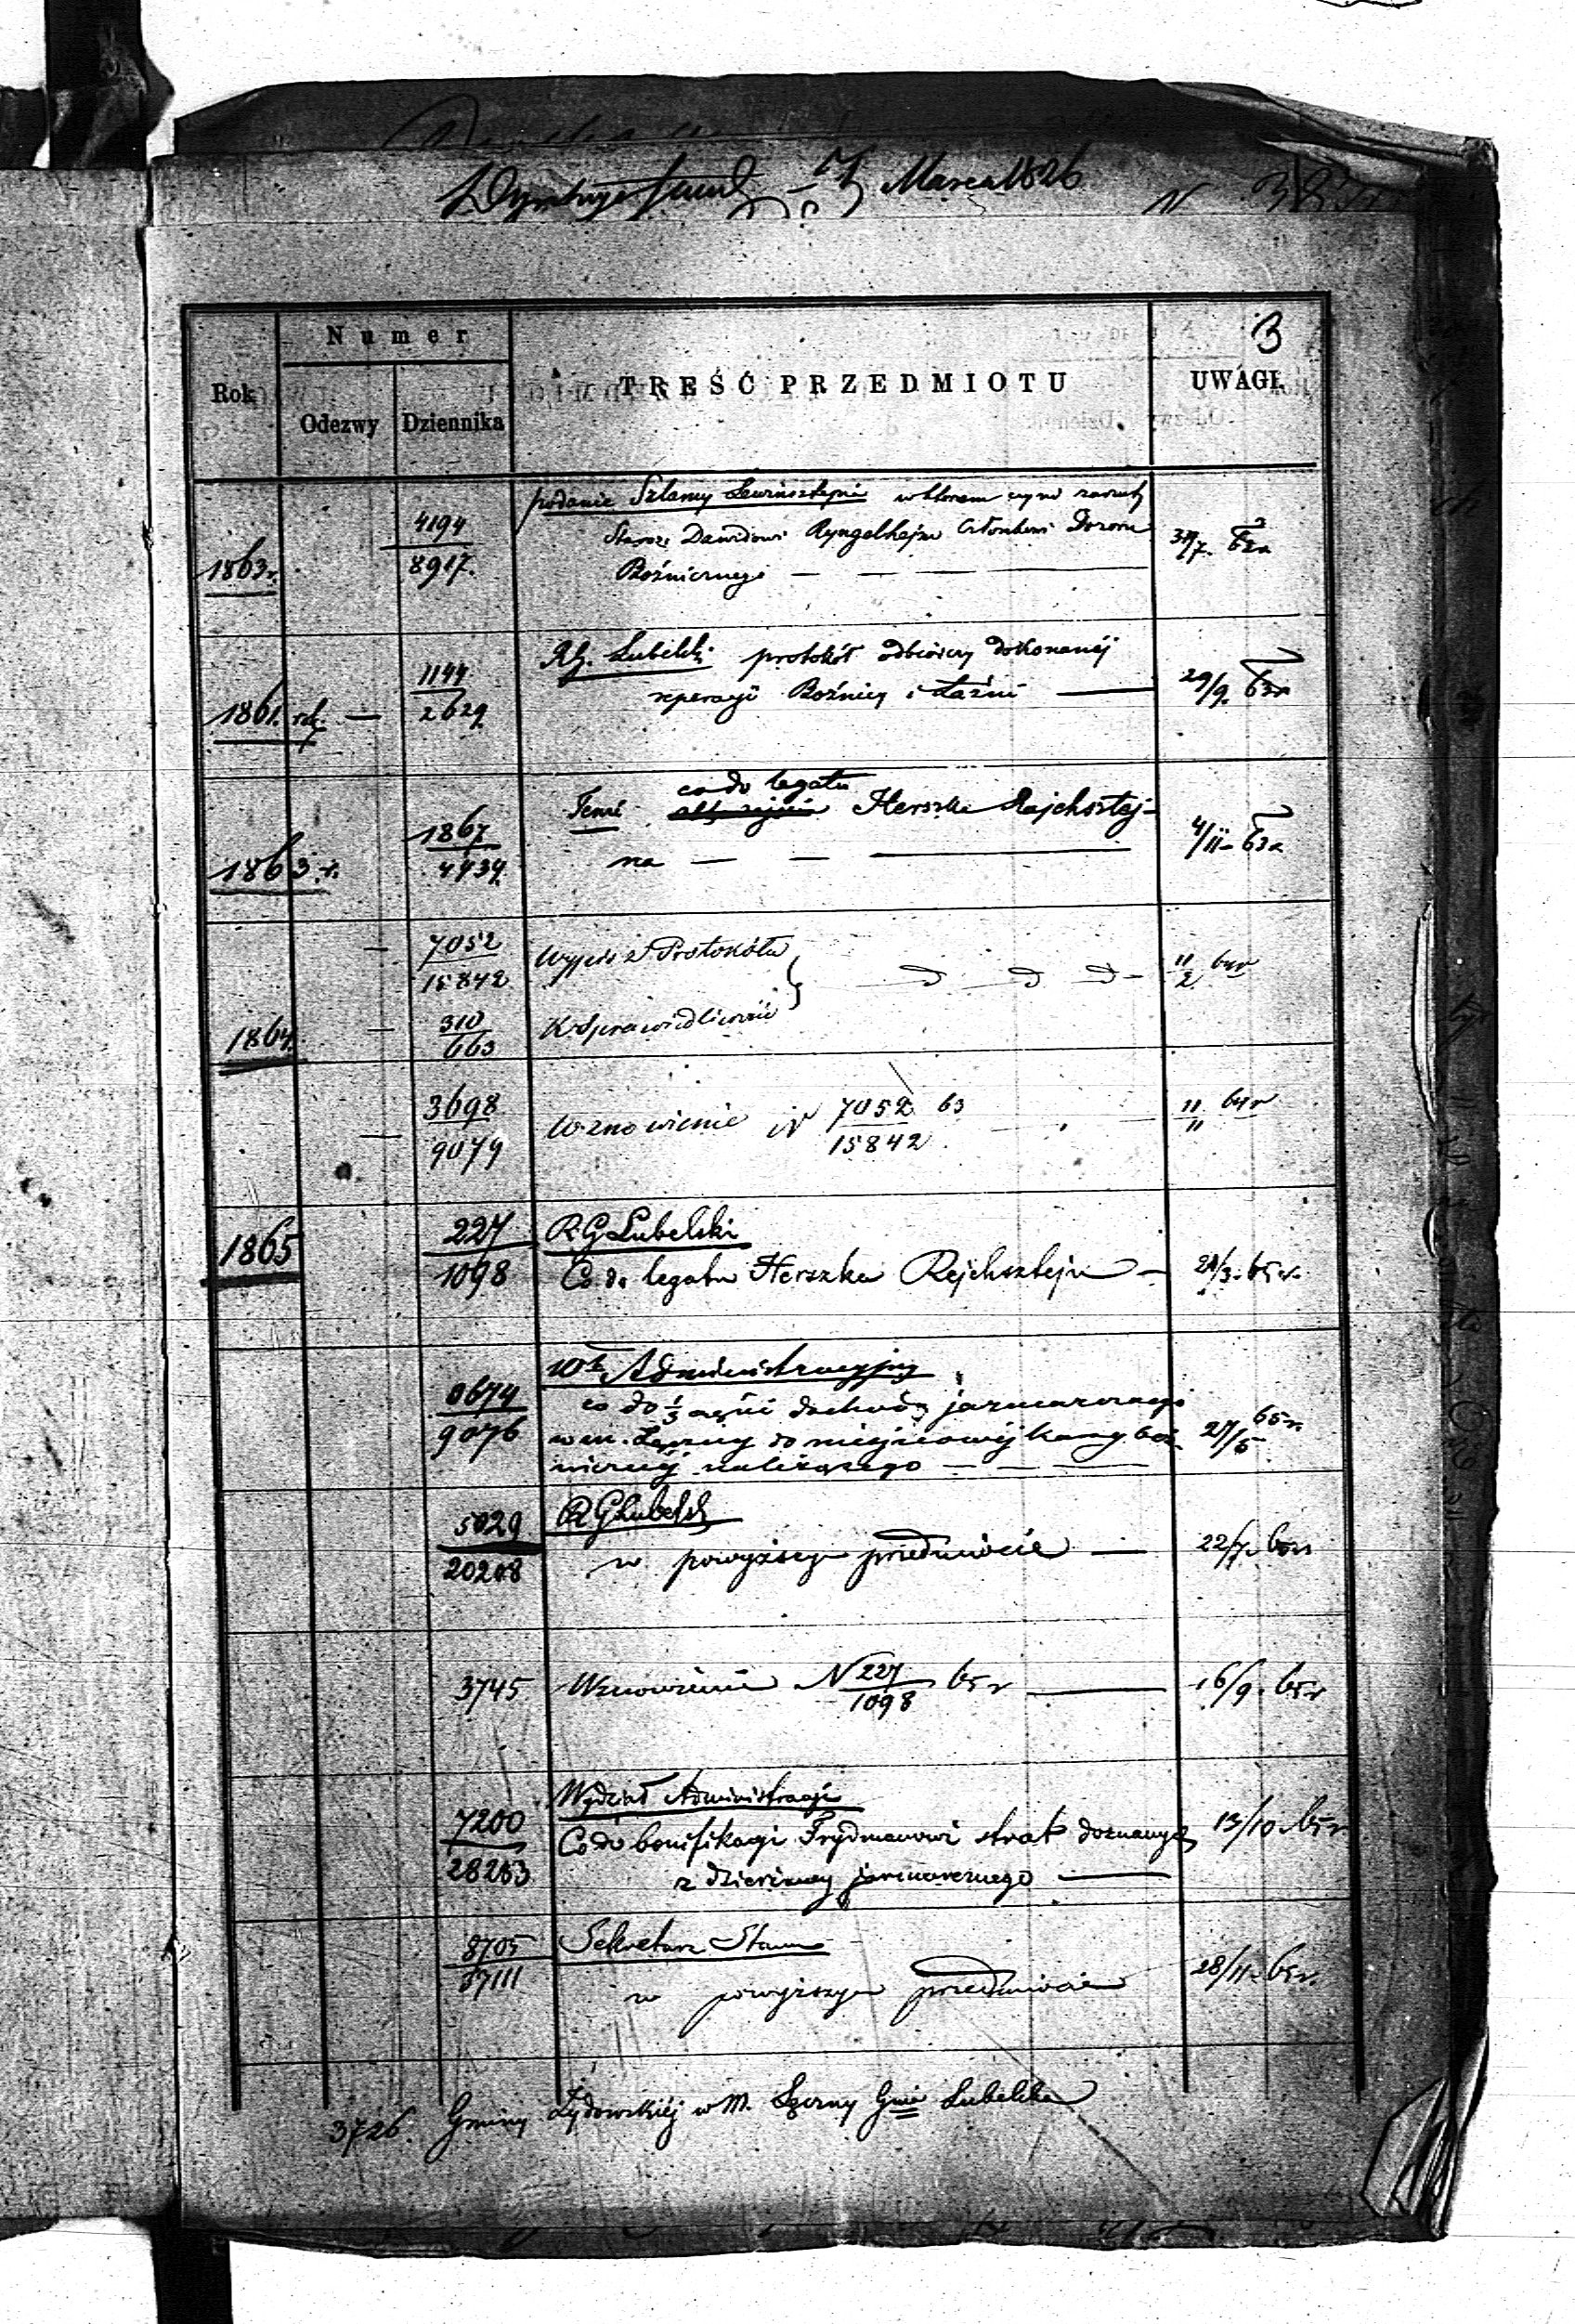 Marca 1826
3
Numer
Rok
Odezwy
Dziennika
TREŚĆ PRZEDMIOTU
UWAGI.
1863 r.
4194
8917.
podanie Szlamy w którem czyni zarzuty
Staroz. Dawidowi Ryngelhejm Członkowi Dozoru
Bóżniczego — — —
31/7. 63r
1861. r.
—
1144
2629
RG. Lubelski protokół odbiorczy dokonanéj
reperacji Bóżnicy i Łaźni —
29/9. 63r
1863. r.
1867
4434
Tenże co do legatu
Herszka Rajchsztej-
na — — —
4/11 - 63r
—
7052
15842
Wypis z Protokółu
11/2 64r
1864.
—
310
663
K. Sprawiedliwości
—
3698
9079
Wznowienie N 7052 63
15842
11/11 64r
1865
227
1098
R. G Lubelski
Co do legatu Herszka Rejchsztejn —
21/3. 65 r.
9076
Administracyjny
co do 1/3 części dochodu jarmarcznego
w m. Łęczny do miejscowéj kassy boż-
niczéj należącego — — —
27/5 65 r.
5029
20208
R G Lubelski
w powyższym przedmiocie —
22/7. 65r
3745
Wznowienie N 227 65 r —
1098
16/9. 65r
7200
28263
Wydział Administracji
Co do bonifikacji Frydmanowi strat doznanych
z dzierżawy jarmarcznego —
13/10 65r
8705
37111
Sekretarz Stanu
w powyższym przedmiocie
28/11. 65r.
3726. Gminy Żydowskiéj w M. Łęczny Gnii Lubelska